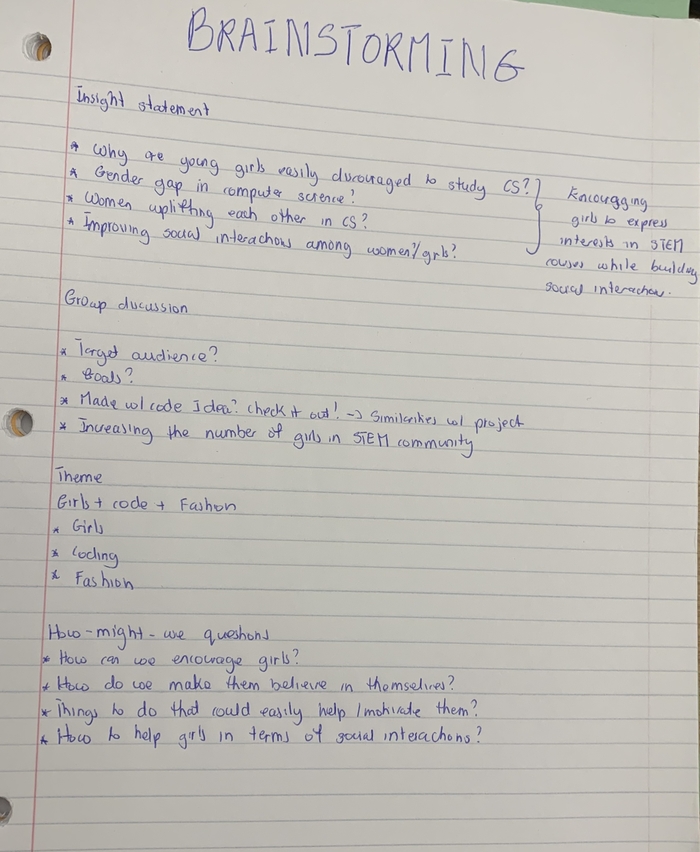 BRAINSTORMING
Insight statement
* Why are young girls easily discouraged to study CS?
* Gender gap in computer science?
* Women uplifting each other in CS?
* Improving social interactions among women/girls?
Encouraging
girls to express
interests in STEM
courses while building
social interaction.
Group discussion
* Target audience?
* Goals?
* Made w/ code Idea? check it out! -> Similarities w/ project
* Increasing the number of girls in STEM community
Theme
Girls + code + Fashion
* Girls
* Coding
* Fashion
How-might-we questions
* How can we encourage girls?
* How do we make them believe in themselves?
* Things to do that could easily help / motivate them?
* How to help girls in terms of social interactions?